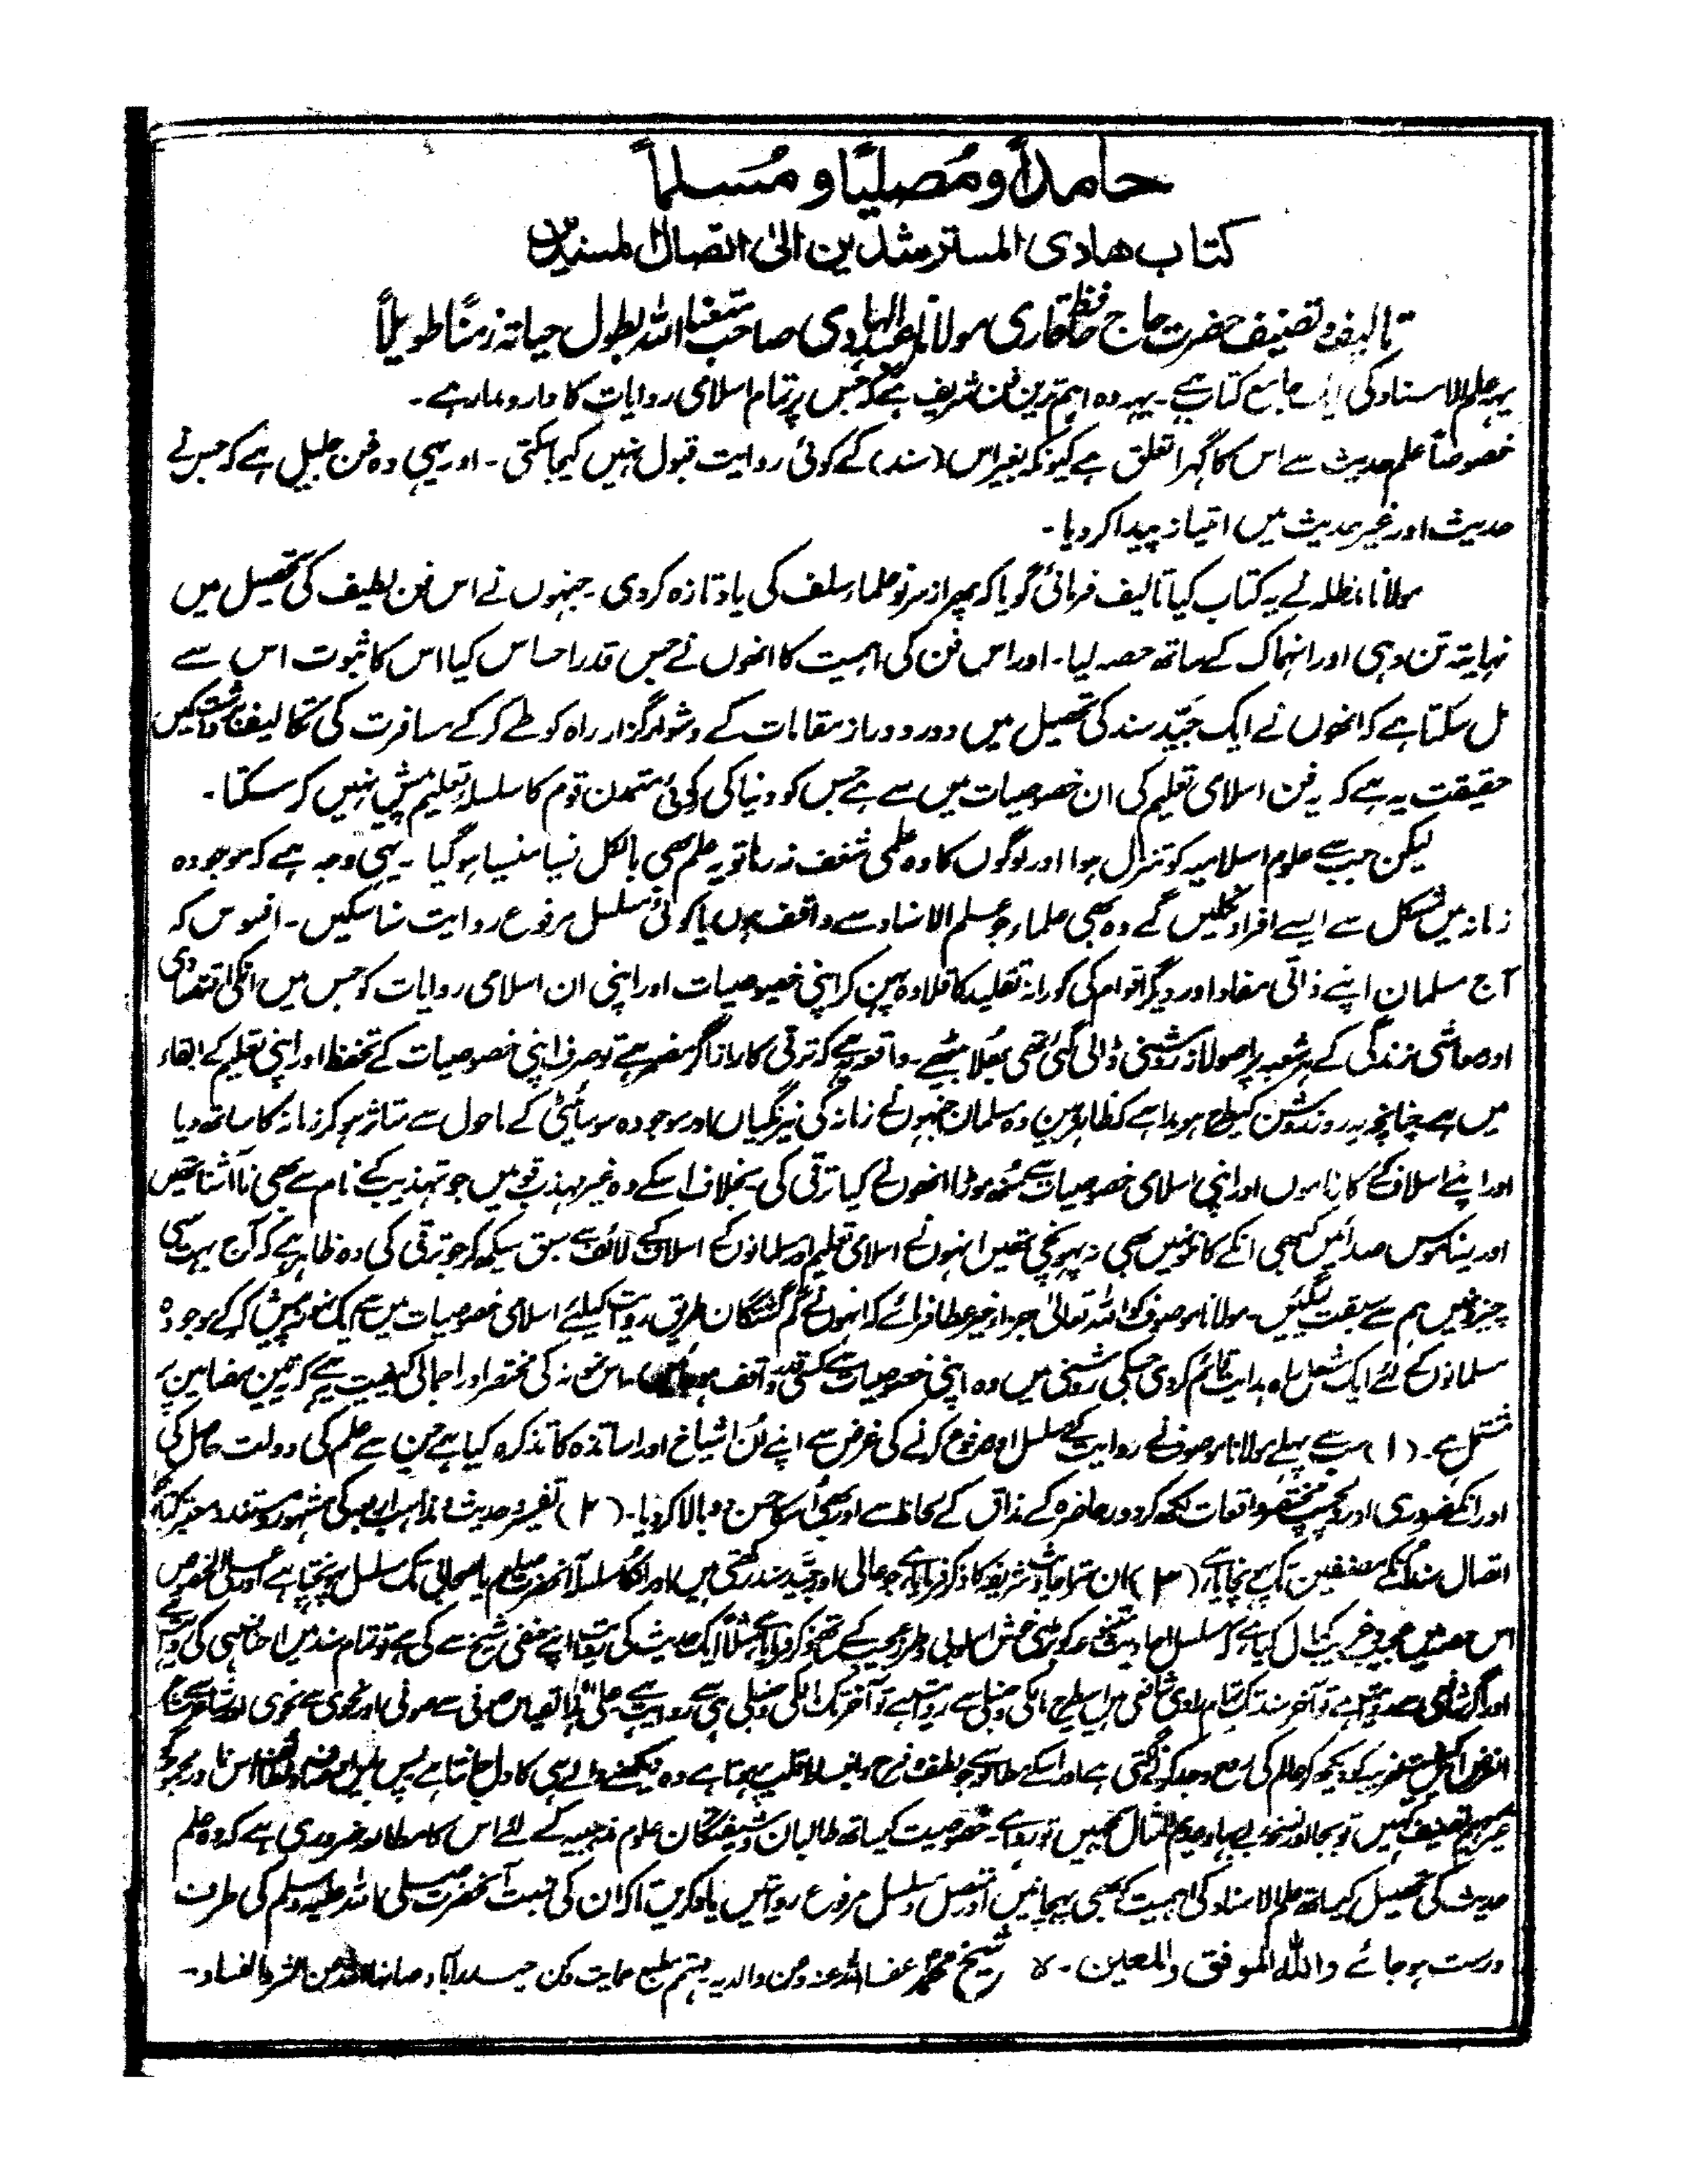 حامداً و مُصلیًا و مُسلماً
کتاب هادی المسترشدین الیٰ اتصال المسندین
تالیف و تصنیف حضرت حاج حافظ قاری مولانا عبدالهادی صاحب متعنا اللہ بطول حیاتہ زمنًا طویلاً
یہ علم الاسناد کی ایک جامع کتاب ہے۔ یہہ وہ اہم ترین فن شریف ہے کہ جس پر تمام اسلامی روایات کا دارومدار ہے۔
خصوصاً علم حدیث سے اس کا گہرا تعلق ہے کیونکہ بغیر اس (سند) کے کوئی روایت قبول نہیں کیجاسکتی۔ اور یہی وہ فن جلیل ہے کہ جس نے
حدیث اور غیر حدیث میں امتیاز پیدا کر دیا۔
مولانا مدظلہ نے یہ کتاب کیا تالیف فرمائی گویا کہ پھر از سر نو علمار سلف کی یاد تازہ کردی۔ جنہوں نے اس فن لطیف کی تحصیل میں
نہایتہ تن دہی اور انہماک کے ساتھ حصہ لیا۔ اور اس فن کی اہمیت کا انھوں نے جس قدر احساس کیا اس کا ثبوت اس سے
مل سکتا ہے کہ انھوں نے ایک جیّد سند کی تحصیل میں دور و دراز مقامات کے دشوار گزار راہ کو طے کرکے مسافرت کی تکالیف برداشت کیں
حقیقت یہ ہے کہ یہ فن اسلامی تعلیم کی ان خصوصیات میں سے ہے جس کو دنیا کی کوئی متمدن قوم کا سلسلہ تعلیم پیش نہیں کر سکتا۔
لیکن جب سے علوم اسلامیہ کو تنزل ہوا اور لوگوں کا وہ علمی شغف نہ رہا تو یہ علم بھی بالکل نسیا منسیا ہو گیا۔ یہی وجہ ہے کہ موجودہ
زمانہ میں مشکل سے ایسے افراد نکلیں گے وہ بھی علماء جو علم الاسناد سے واقف ہوں یا کوئی مسلسل مرفوع روایت سنا سکیں۔ افسوس کہ
آج مسلمان اپنے ذاتی مفاد اور دیگر اقوام کی کورانہ تقلید کا قلادہ پہن کر اپنی خصوصیات اور اپنی ان اسلامی روایات کو جس میں انکی اقتصادی
اور معاشی زندگی کے ہر شعبہ پر اصولانہ روشنی ڈالی گئی تھی بھلا بیٹھے۔ واقعہ یہ ہے کہ ترقی کا راز اگر مضمر ہے تو صرف اپنی خصوصیات کے تحفظ اور اپنی تعلیم کے ابقاء
میں ہے چنانچہ یہ روز روشن کیطرح ہویدا ہے کہ ظاہر بین وہ مسلمان جنہوں نے زمانہ کی نیرنگیاں اور موجودہ سوسائیٹی کے ماحول سے متاثر ہو کر زمانہ کا ساتھ دیا
اور اپنے اسلاف کے کارناموں اور اپنی اسلامی خصوصیات سے منہ موڑا انھوں نے کیا ترقی کی۔ بخلاف اسکے وہ غیر مہذب قومیں جو تہذیب کے نام سے بھی نا آشنا تھیں
اور یہ ناموس صدائیں کبھی انکے کانوں میں بھی نہ پہونچی تھیں انہوں نے اسلامی تعلیم اور مسلمانوں کے اسلاف کے لائف سے سبق سیکھ کر جو ترقی کی وہ ظاہر ہے کہ آج بہت سی
چیزوں میں ہم سے سبقت لیگئیں۔ مولانا موصوف کو اللہ تعالیٰ جزاء خیر عطا فرمائے کہ انہوں نے گم گشتگان طریق روایت کیلئے اسلامی خصوصیات میں سے ایک نمونہ پیش کرکے موجودہ
مسلمانوں کے لئے ایک مشعل راہ ہدایت قائم کردی جسکی روشنی میں وہ اپنی خصوصیات سے کسقدر واقف اس نمونہ کی مختصر اور اجمالی کیفیت یہ ہے کہ تین مضامین پر
مشتمل ہے۔ (۱) سب سے پہلے مولانا موصوف نے روایت کے مسلسل اور مرفوع کرنے کی غرض سے اپنے اُن اشیاخ اور اساتذہ کا تذکرہ کیا ہے جن سے علم کی دولت حاصل کی
اور انکے ضروری اور دلچسپ مختصر واقعات لکھ کر دور حاضرہ کے مذاق کے لحاظ سے اور بھی اُسکا حسن دوبالا کر دیا۔ (۲) تفسیر و حدیث و مذاہب اربعہ کی مشہور و مستند و معتبر کتابوں
اتصال سند انکے مصنفین تک پہنچایا ہے (۳) ان تمام احادیث شریفہ کا ذکر فرمایا ہے جو عالی اور جیّد سند رکھتی ہیں اور انکا سلسلہ آنحضرت صلعم یا صحابی تک مسلسل پہونچتا ہے اور علی الخصوص
اس حصہ میں عجیب و غریب کمال کیا ہے کہ مسلسل احادیث کو بڑی خوش اسلوبی و طرز عجیب کے ساتھ ذکر فرمایا ہے مثلاً ایک حدیث کی روایت اپنے حنفی شیخ سے کی ہے تو تمام سند میں احناف ہی کی روایت ہے
اور اگر شافعی سے روایت ہے تو آخر سند تک تمام راوی شافعی ہیں اسیطرح مالکی و حنبلی سے روایت ہے تو آخر تک مالکی و حنبلی ہی سے روایت ہے علیٰ ہذا القیاس صوفی سے صوفی اور نحوی سے نحوی اور شاعر سے شاعر
الغرض کو دیکھ کر عالم کی روح وجد کرنے لگتی ہے اور اسکے مطالعہ سے جو لطف و فرح و انبساط قلب ہوتا ہے وہ دیکھنے والے ہی کا دل جانتا ہے پس اس نادر مجموعہ کو
تصنیف کہیں تو بجا اور نسخہ بے بہا و عدیم المثال کہیں تو روا ہے۔ خصوصیت کیساتھ طالبان و شیفتگان علوم مذہبیہ کے لئے اس کا مطالعہ ضروری ہے کہ وہ علم
حدیث کی تحصیل کیساتھ علم الاسناد کی اہمیت کو بھی پہچانیں اور متصل و مسلسل مرفوع روایتیں یاد کریں تاکہ ان کی نسبت آنحضرت صلی اللہ علیہ وسلم کی طرف
درست ہو جائے واللہ الموفق والمعین۔ شیخ محمد عفا اللہ عنہ و عن والدیہ مہتمم مطبع حمایت دکن حیدرآباد صانہا اللہ عن الشر والفساد۔